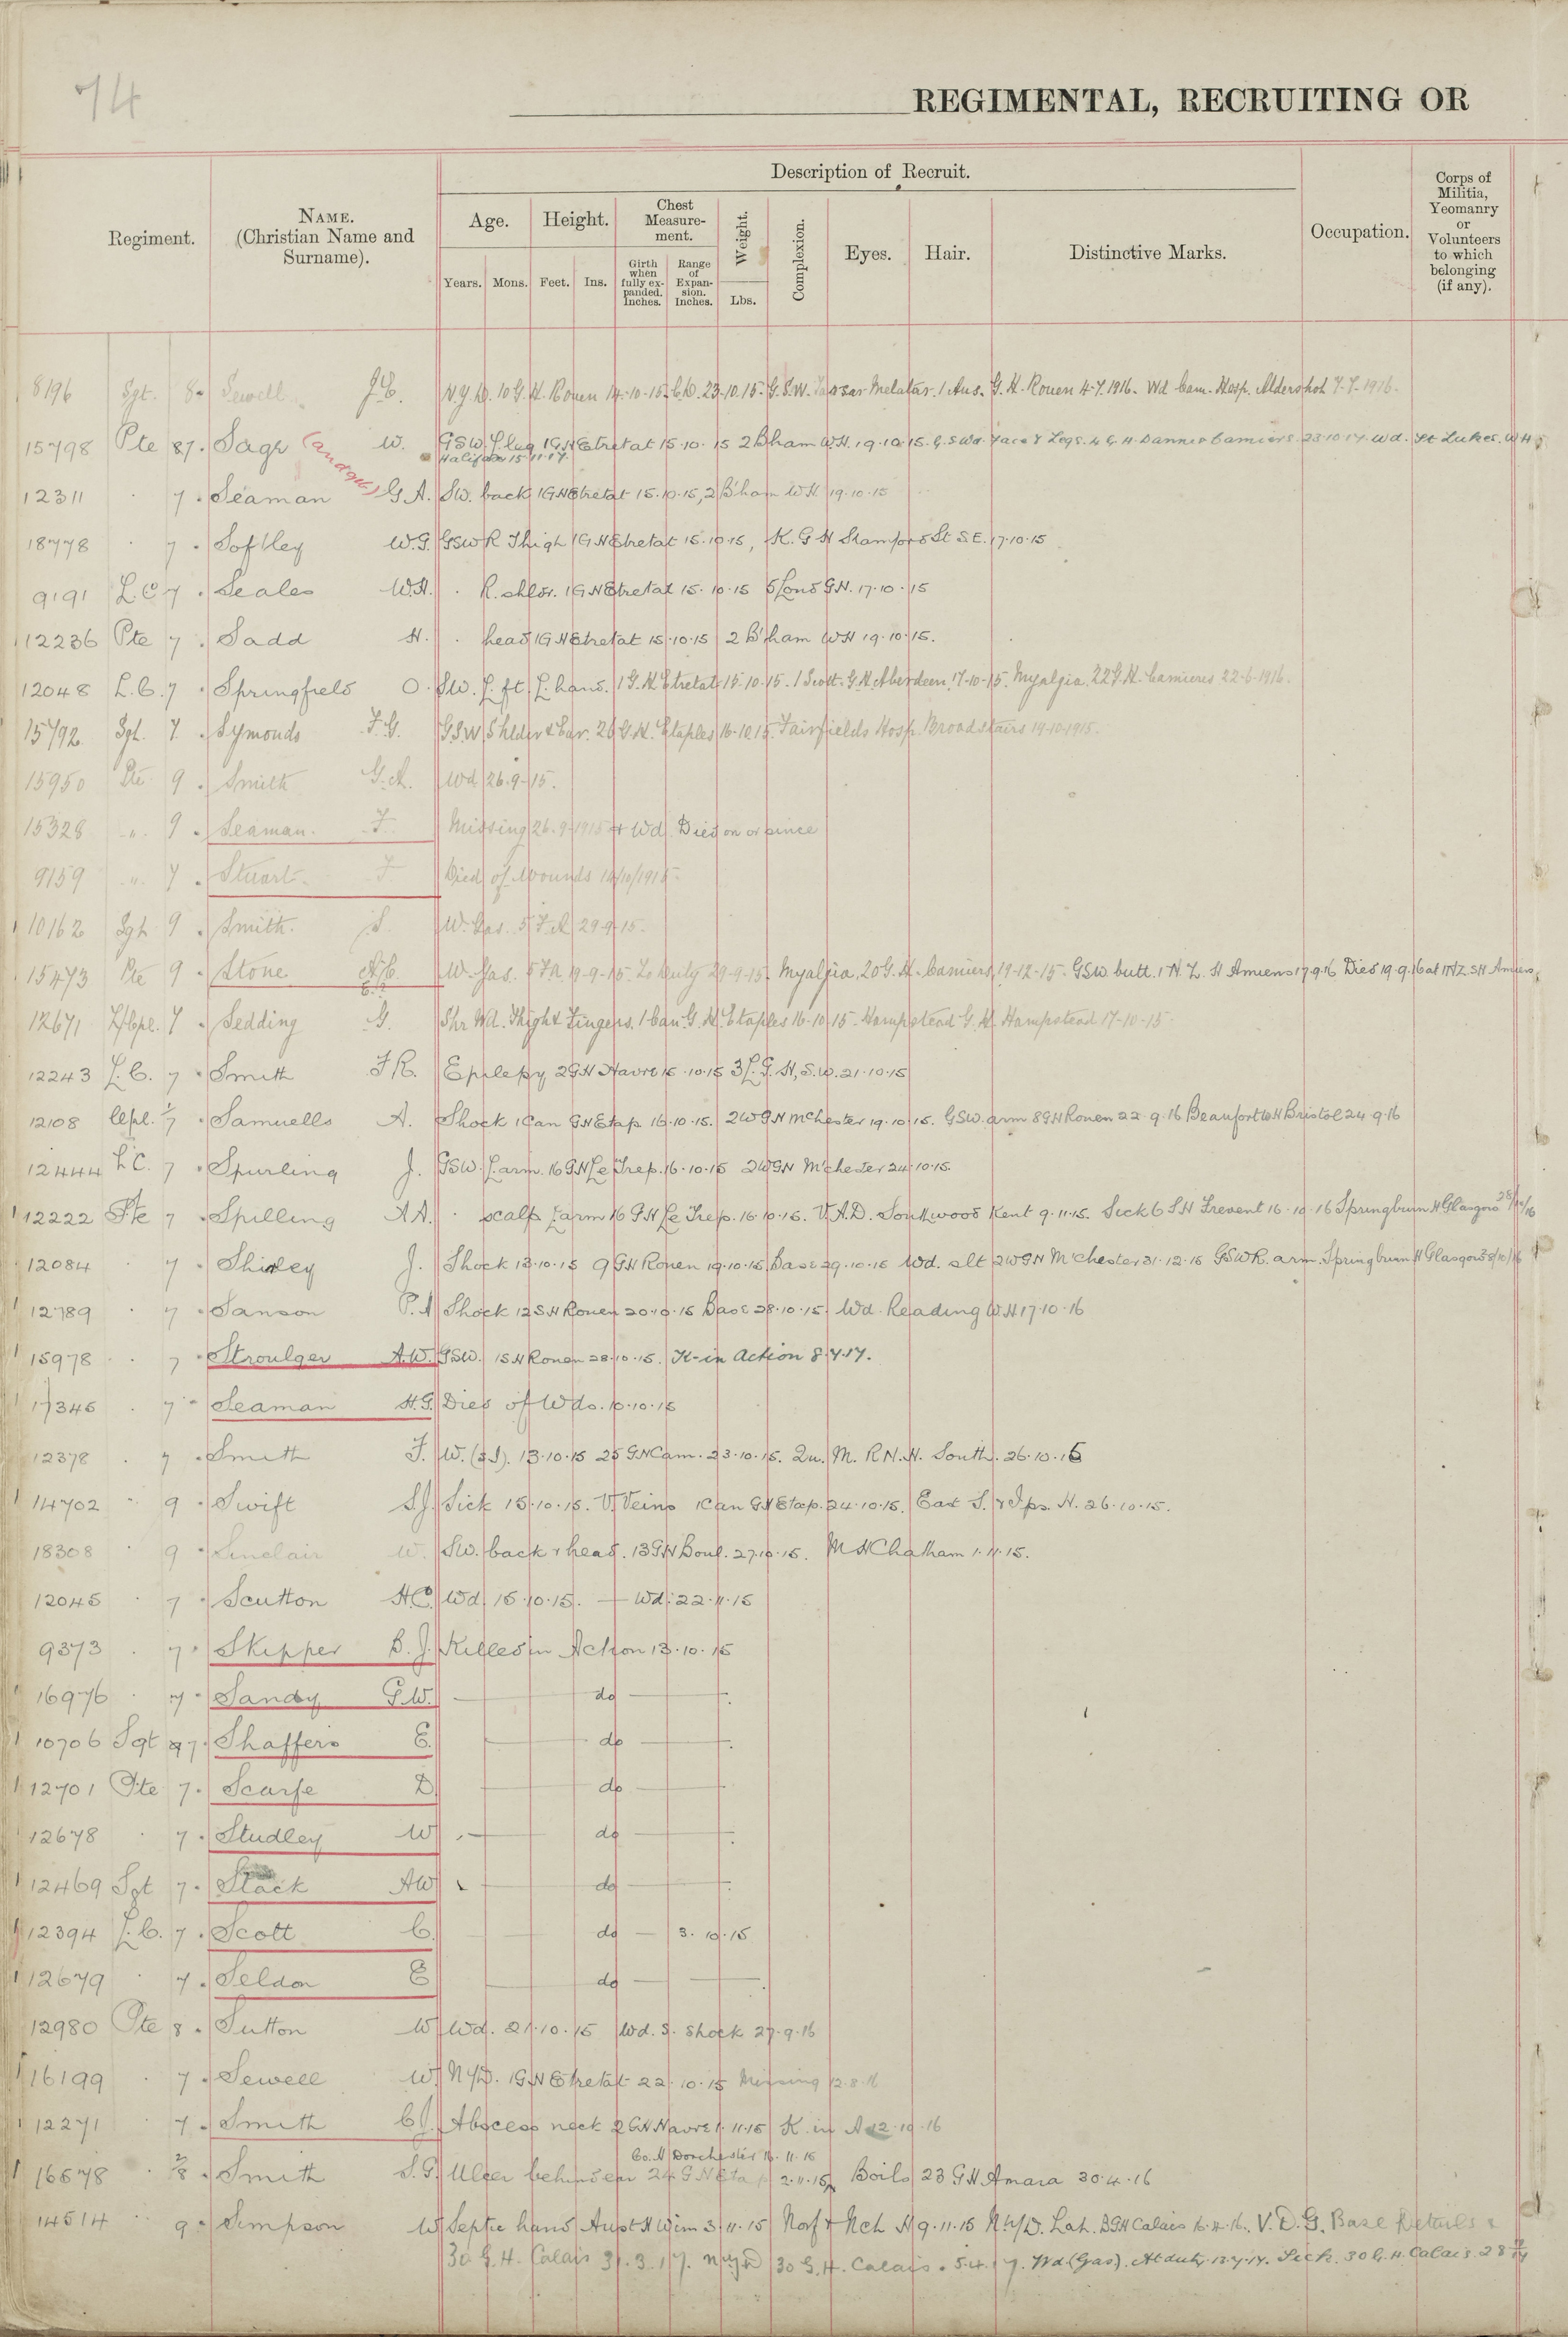 74
REGIMENTAL, RECRUITING OR
Regiment.
NAME.
(Christian Name and
Surname).
Description of Recruit.
Age.
Height.
Chest
Measure-
ment.
Weight.
Complexion.
Eyes.
Hair.
Distinctive Marks.
Occupation.
Corps of
Militia,
Yeomanry
or
Volunteers
to which
belonging
(if any).
Years.
Mons.
Feet.
Ins.
Girth
when
fully ex-
panded.
Inches.
Range
of
Expan-
sion.
Inches.
Lbs.
8196 Sgt. 8 Sewell J.C. N.Y.D. 10 G.H. Rouen 14-10-15. 23-10-15. G.S.W. 1 Aus. G.H. Rouen 4-7-1916. Wd Cam. Hosp. Aldershot 7-7-1916.
15798 Pte 87. Sage W. GSW. 1GH Etretat 15.10.15 2 B'ham W.H. 19.10.15. G.S.Wd. Face & Legs. 4 G.H. Dannes Camiers 23.10.17. Wd. St Lukes. W.H.
Halifax 15.11.17.
12311 7. Seaman G A. SW. back 1GH Etretat 15.10.15, 2 B'ham W.H. 19.10.15
18778 7. Softley W.G. GSW R Thigh 1GH Etretat 15.10.15, K. G H Stamford St S.E. 17.10.15
9191 L.C 7. Seales W.H. R. shldr. 1GH Etretat 15.10.15 5 Lond G.H. 17.10.15
12236 Pte 7. Sadd H. head 1GH Etretat 15.10.15 2 B'ham WH 19.10.15.
12048 L.C. 7. Springfield O. SW. L. ft. L. hand. 1 G.H. Etretat 15.10.15. 1 Scott. G.H. Aberdeen. 17-10-15. Myalgia. 22 G.H. Camiers 22-6-1916.
15792 Sgt. 7. Symonds F.G. G.S.W. Shlder & Ear. 26 G.H. Etaples 16.10.15. Fairfields Hosp. Broadstairs 19-10-1915.
15950 Pte 9. Smith G.A. Wd 26-9-15.
15328 " 9. Seaman. F. Missing 26-9-1915 & Wd. Died on or since
9159 " 7. Stuart. F Died of Wounds 14/10/1915.
10162 Sgt 9. Smith. S. W. Gas. 5 F.A. 29-9-15.
15473 Pte 9. Stone W. Gas. 5 F.A. To Duty 29-9-15. Myalgia, 20 G.H. Camiers, 19-12-15. GSW. butt. 1 N.Z. SH Amiens 17.9.16 Died 19.9.16 at 1NZ. SH Amiens.
12671 L/Cpl. 7. Sedding G. Shr Wd. Thigh & Fingers. 1 Can. G.H. Etaples 16-10-15. Hampstead G.H. Hampstead 17-10-15.
12243 L.C. 7. Smith F R. Epilepsy 2GH Havre 15.10.15 3 L.G.H, S.W. 21.10.15
12108 Cpl. 7. Samuells A. Shock 1 Can GH Etap. 16.10.15. 2W GH M'chester 19.10.15. GSW. arm 8GH Rouen 22.9.16 Beaufort W.H Bristol 24.9.16
12444 L'C. 7. Spurling J. GSW. L. arm. 16 GH Le Trep. 16.10.15 2WGH M'chester 24.10.15.
12222 Pte 7. Spilling A A. scalp L. arm 16 GH Le Trep. 16.10.15. V.A.D. Southwood Kent 9.11.15. Sick 6 S H Frevent 16.10.16 Springburn H Glasgow 28/10/16
12084 7. Shirley J. Shock 13.10.15 9 GH Rouen 19.10.15, Base 29.10.15 Wd. slt 2WGH M'chester 31.12.15 GSW R. arm. Springburn H Glasgow
12789 7. Sanson P.A Shock 12 S H Rouen 20.10.15 Base 28.10.15. Wd. Reading W.H 17.10.16
15978 7. Stroulger A.W. GSW. 1SH Rouen 28.10.15. K-in Action 8.4.17.
17345 7. Seaman H.G. Died of Wds. 10.10.15
12378 7. Smith F. W. (S.I). 13.10.15 25 GH Cam. 23.10.15. Qu. M. R N. H. South. 26.10.15
14702 9. Swift S.J. Sick 15.10.15. V. Veins 1 Can GH Etap. 24.10.15. East S. & Ips. H. 26.10.15.
18308 9. Sinclair W. SW. back & head. 13 GH Boul. 27.10.15. M H Chatham 1.11.15.
12045 7. Scutton H.C. Wd. 15.10.15. — Wd: 22.11.15
9373 7. Skipper B. J. Killed in Action 13.10.15
16976 7. Sandy G.W. — do —
10706 Sgt 7. Shaffers E. — do —
12701 Pte 7. Scarfe D — do —
12678 7. Studley W — do —
12469 Sgt 7. Stack AW — do —
12394 L.C. 7. Scott C. — do — 3.10.15
12679 7. Seldon E — do —
12980 Pte 8. Sutton W Wd. 21.10.15 Wd. S. Shock 27.9.16
16199 7. Sewell W. NYD. 1GH Etretat 22.10.15 Missing 12.8.16
12271 7. Smith C J. Abscess neck 2GH Havre 1.11.15 K. in A 12.10.16
Co. H Dorchester 16.11.15
16578 2/8. Smith S. G. Ulcer behind ear 24 GH Etap 2.11.15, Boils 23 GH Amara 30.4.16
14514 9. Simpson W Septic hand Aust H Wim 3.11.15 Norf & Nch H 9.11.15 N.Y.D. Lah. BGH Calais 16.4.16. V. D. G. Base Details
30 G.H. Calais 31.3.17. NYD 30 G.H. Calais. 5.4.17. Wd (Gas). At duty 12.7.17. Sick. 30 G.H. Calais.